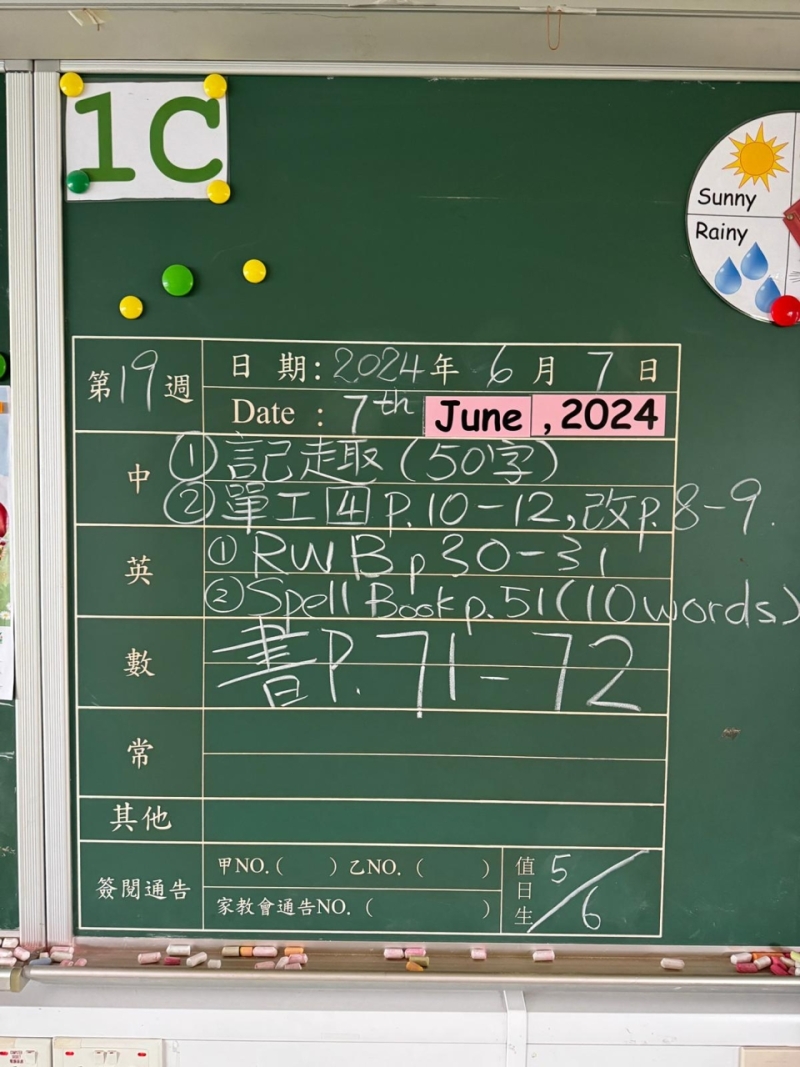 1C
Sunny
Rainy
第19週
日 期：2024年 6月 7日
Date : 7th June , 2024
中
①記走取（50字）
②單工4 P.10-12,改p.8-9.
英
①RWB p30-31
②Spell Book p.51(10words)
數
書P.71-72
常
其他
簽閱通告
甲NO.( ) 乙NO. ( )
家教會通告NO. ( )
值日生 5/6